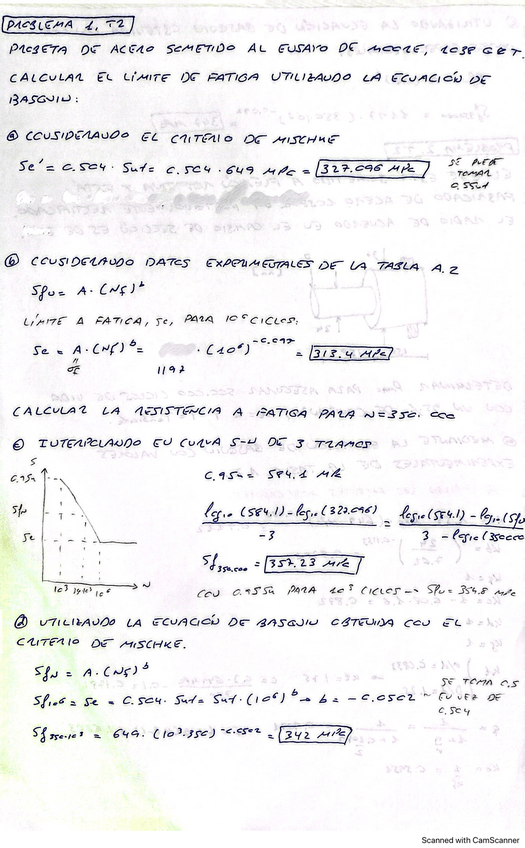 PROBLEMA 1, T2
PROBETA DE ACERO SOMETIDO AL ENSAYO DE MOORE, 1038 G&T.
CALCULAR EL LÍMITE DE FATIGA UTILIZANDO LA ECUACIÓN DE
BASQUIN:
ⓐ CONSIDERANDO EL CRITERIO DE MISCHKE
Se' = 0.504 · Sut = 0.504 · 649 MPa = 327.096 MPa
SE PUEDE
TOMAR
0,5Sut
ⓑ CONSIDERANDO DATOS EXPERIMENTALES DE LA TABLA A.2
Sfn = A · (Nf)^b
LÍMITE A FATIGA, Se, PARA 10^6 CICLOS:
Se = A · (Nf)^b = · (10^6)^-0.097 = 313.4 MPa
1197
CALCULAR LA RESISTENCIA A FATIGA PARA N=350.000
ⓒ INTERPOLANDO EN CURVA S-N DE 3 TRAMOS
S
0.9Su
Sfn
Se
10^3
10^6
N
0.9Su = 584.1 MPa
log10 (584.1) - log10 (327.096) / -3 = log10 (584.1) - log10 (Sfn / 3 - log10 (350000
Sf350.000 = 357.23 MPa
CON 0.95Su PARA 10^3 CICLOS → Sfn = 354.8 MPa
ⓓ UTILIZANDO LA ECUACIÓN DE BASQUIN OBTENIDA CON EL
CRITERIO DE MISCHKE.
SfN = A · (Nf)^b
Sf10^6 = Se = 0.504 · Sut = Sut · (10^6)^b → b = -0.0502
SE TOMA 0,5
EN VEZ DE
0,504
Sf350·10^3 = 649 · (10^3·350)^-0.0502 = 342 MPa
Scanned with CamScanner